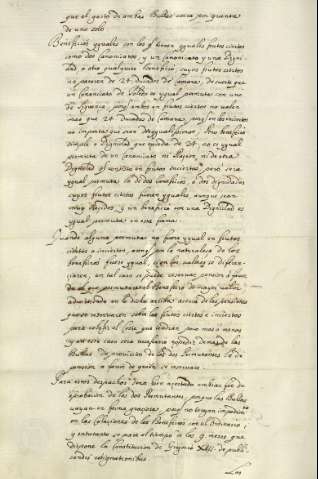 que el gasto de ambas Bullas corra por quenta
de uno solo
Beneficios yguales son los q̃ tienen yguales frutos ciertos
como dos Canonicatos, y un Canonicato y una Digni-
dad u otro qualquier beneficio, cuyos frutos ciertos
no passen de 24 ducados de Camara, de suerte que
un Canonicato de Toledo es ygual permuta con uno
de Siguenza, porq̃ ambos en frutos ciertos no valen
mas que 24 ducados de Camara, porq̃ en los inciertos
no importa que sean desiguales
simple o Dignidad que exceda de 24, no es ygual
permuta de un Canonicato ni Racion, ni de otra
Dignidad q̃ consiste en frutos inciertos, pero sera
ygual permuta la de dos beneficios, o dos dignidades
cuyos frutos ciertos fueren yguales, aunque sean
muy crecidos, y un beneficio con una Dignidad es
ygual permuta en esta forma.
Quando alguna permuta no fuere ygual en frutos
ciertos o inciertos, porq̃ por la naturaleza de los
beneficios fuesse ygual, y en los valores se diferen-
ciaren, en tal caso se puede reservar pension a favor
de el que permutare el Beneficio de mayor valor
advirtiendo en la
para reservacion sobre los frutos ciertos e inciertos
para saber el coste que tendran, poco mas o menos
y en este caso sera necessario expedir demas de las
Bullas de provision de los dos Permutantes la de
pension a favor de quien se reservare
Para estos despachos sera bien acertado embiar fee de
aprobacion de los dos Permutantes, porque las Bullas
vayan en forma graciosa, porq̃ no tengan impedim.to
en las colaciones de los Beneficios con el Ordinario;
y entretanto se passe el tiempo a los 9. meses que
dispone la Constitucion de Gregorio XIII. de publi-
candis resignationibus.
Los